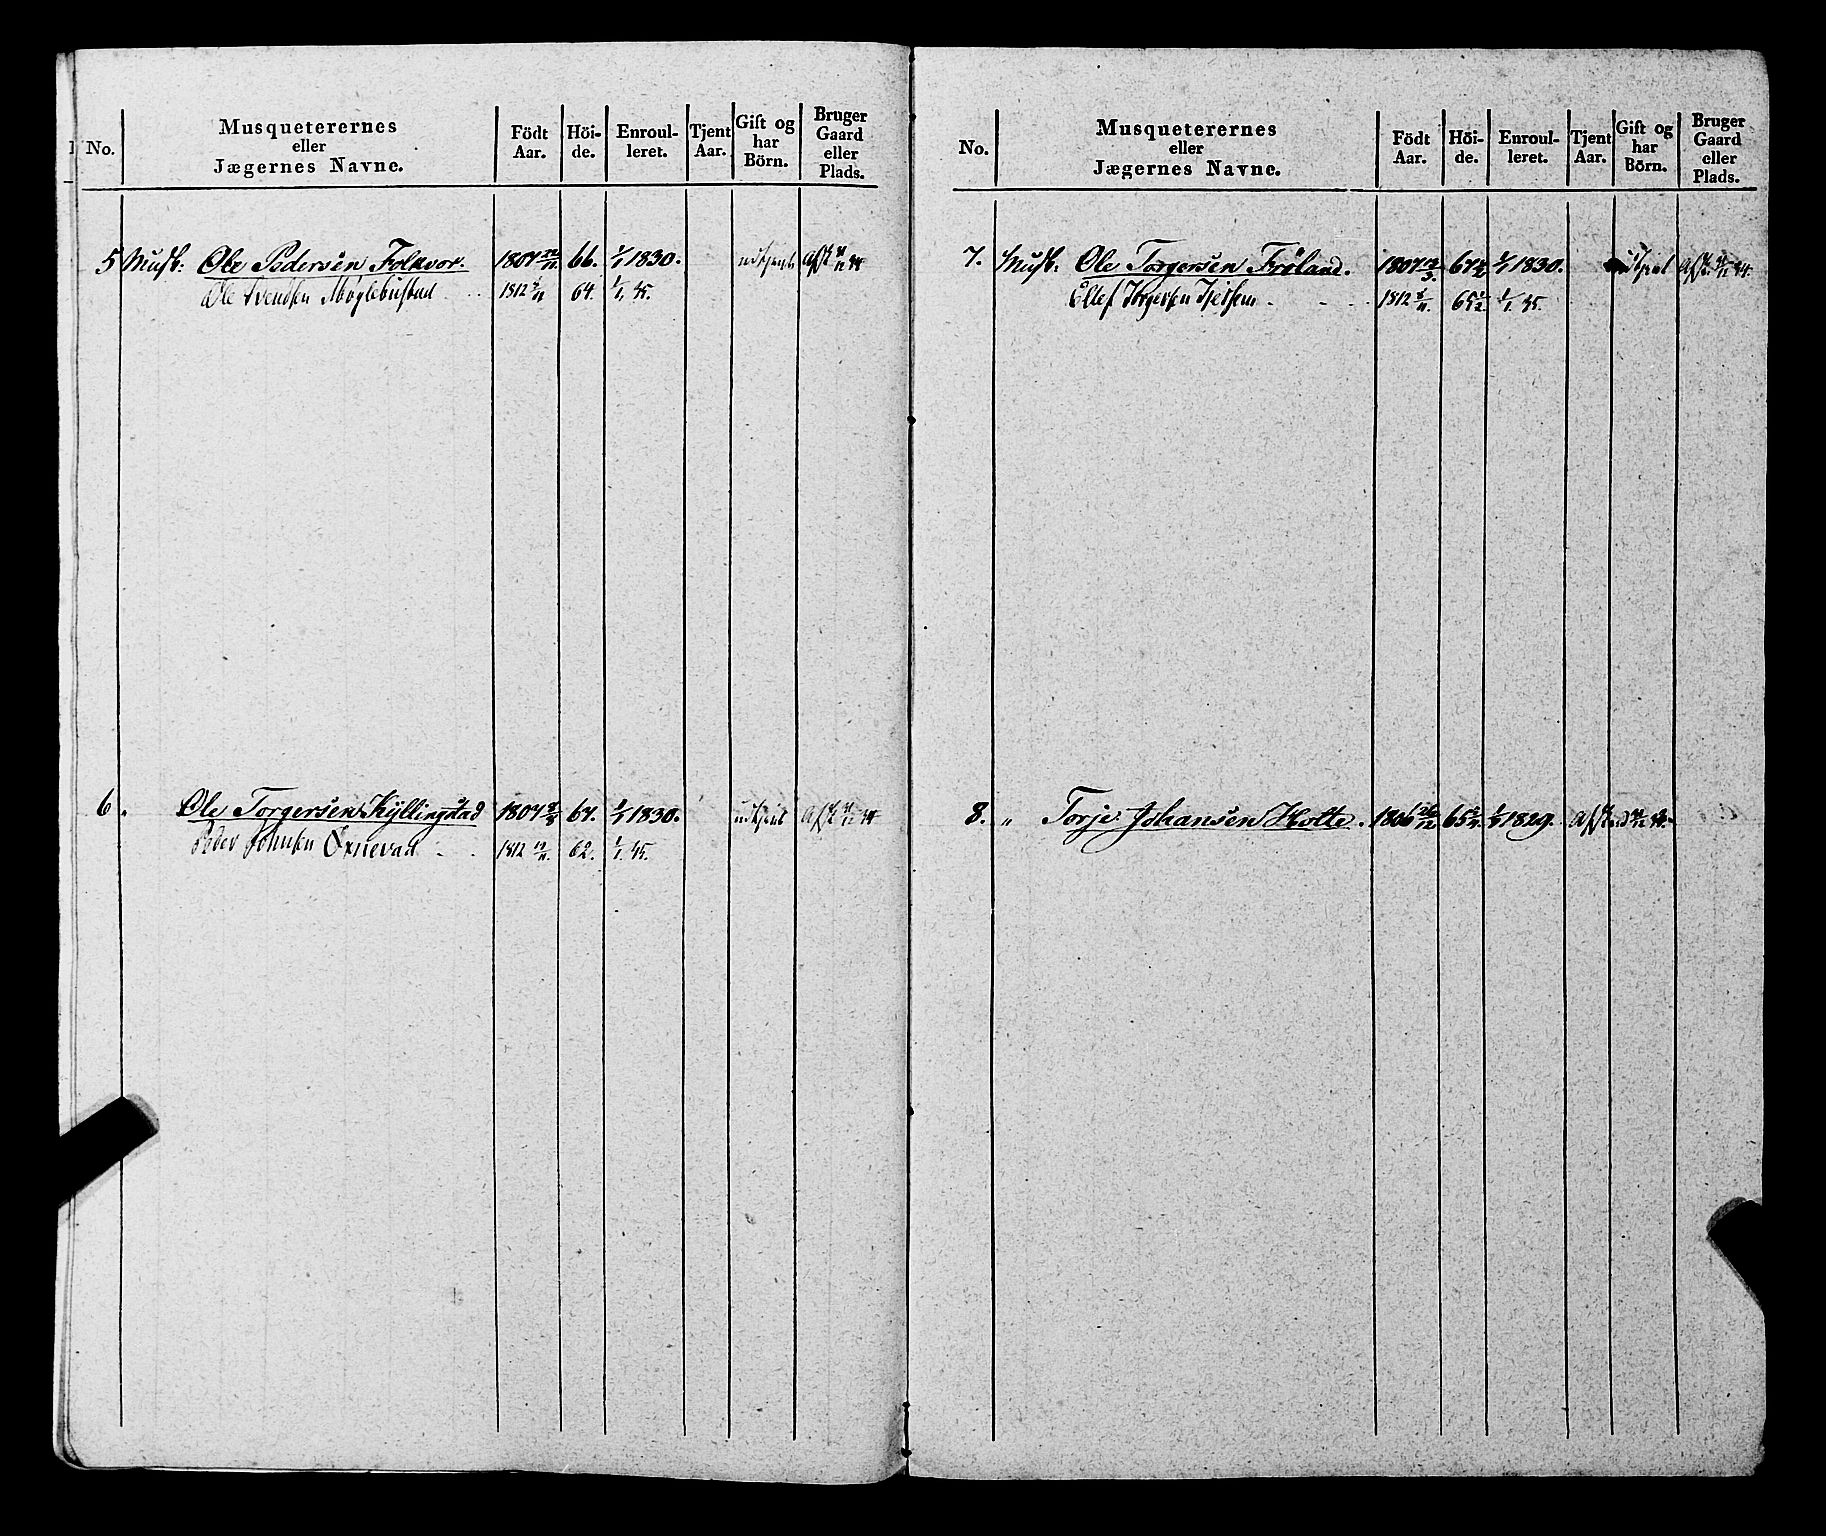 No.
Musqueterernes
eller
Jægernes Navne.
Födt
Aar.
Höi-
de.
Enroul-
leret.
Tjent
Aar.
Gift og
har
Börn.
Bruger
Gaard
eller
Plads.
5 Musq: Ole Pedersen Folkvor. 1807 66. 1/1 1830. udtjent
Ole Svendsen Møglebustad 1812 64. 1/1 45.
6 " Ole Torgersen Kyllingstad 1807 67. 1/1 1830. udtjent
Peder Johnsen Øxnevad 1812 62. 1/1 45.
No.
Musqueterernes
eller
Jægernes Navne.
Födt
Aar.
Höi-
de.
Enroul-
leret.
Tjent
Aar.
Gift og
har
Börn.
Bruger
Gaard
eller
Plads.
7. Musq: Ole Torgersen Fröland. 1807 1/1 1830. udtjent
Ellef Torgersen 1812 65 1/2 1/1 45.
8. " Torje Johansen Holte. 1806 1/1 1829.